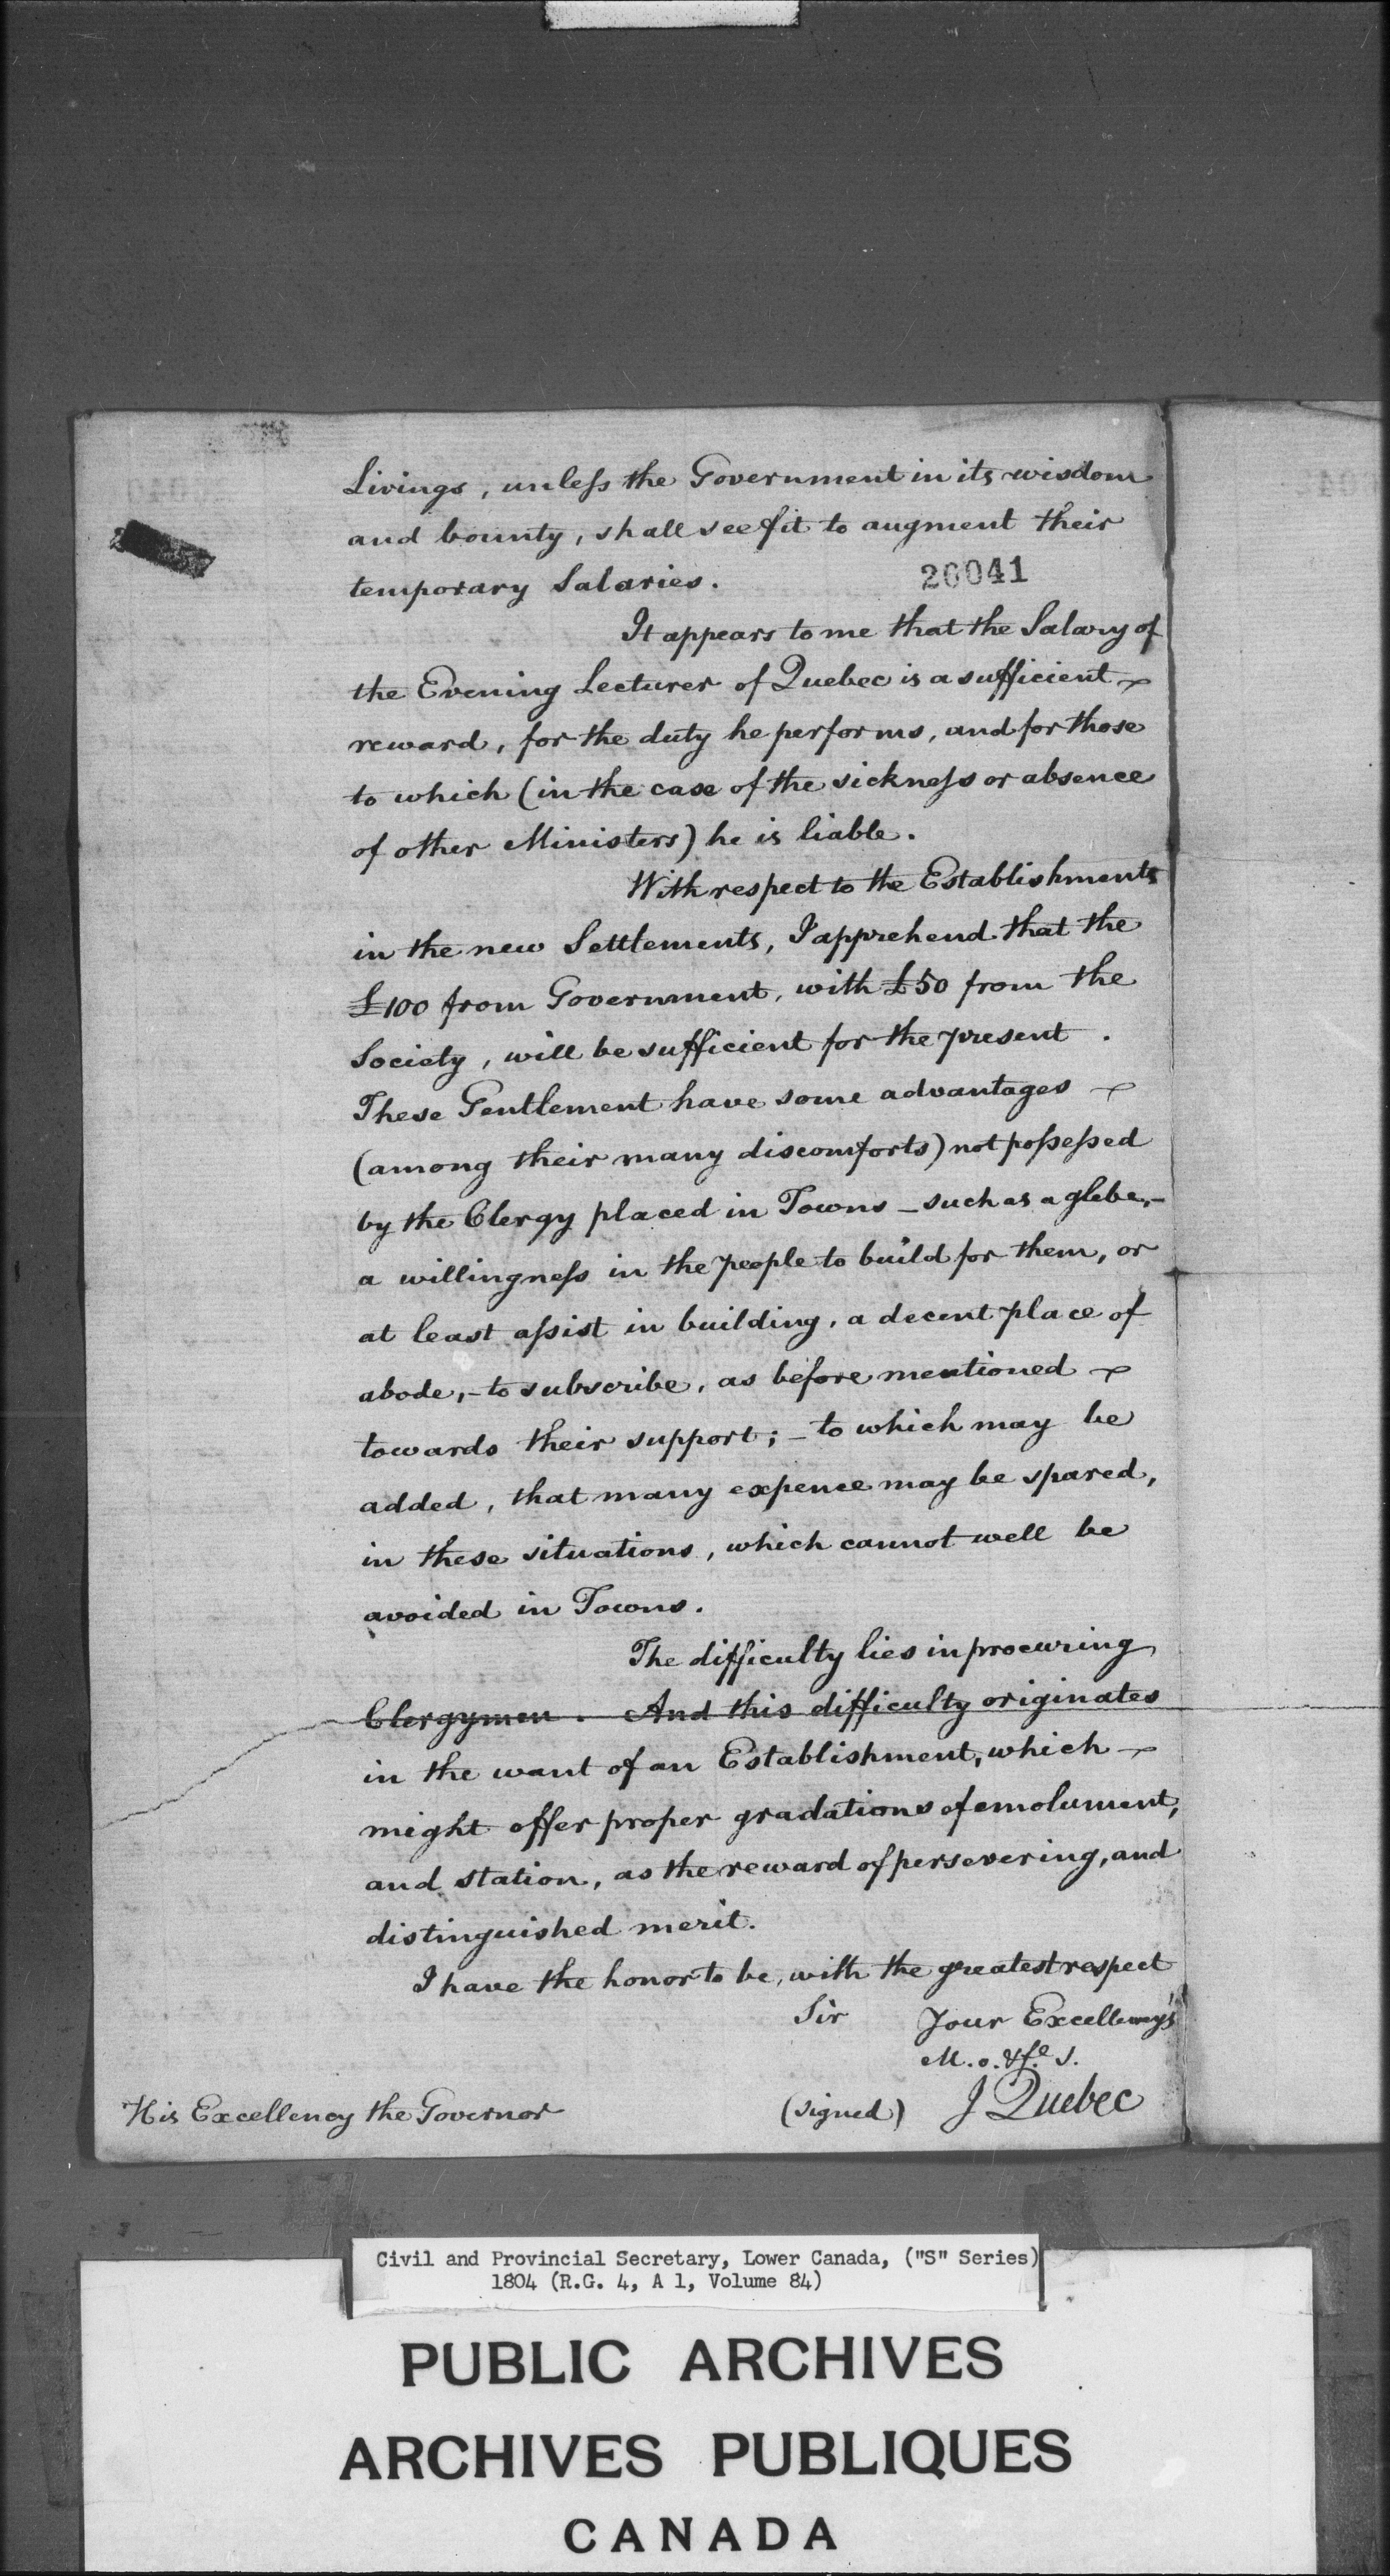 Livings, unless the Government in its wisdom
and bounty, shall see fit to augment their
temporary Salaries.
26041
It appears to me that the Salary of
the Evening Lecturer of Quebec is a sufficient
reward, for the duty he performs, and for those
to which (in the case of the sickness or absence
of other Ministers) he is liable.
With respect to the Establishments
in the new Settlements, I apprehend that the
£100 from Government, with £50 from the
Society, will be sufficient for the present.
These Gentlement have some advantages
(among their many discomforts) not possessed
by the Clergy placed in Towns - such as a glebe, -
a willingness in the people to build for them, or
at least assist in building, a decent place of
abode, - to subscribe, as before mentioned
towards their support; - to which may be
added, that many expence may be spared,
in these situations, which cannot well be
avoided in Towns.
The difficulty lies in procuring
Clergymen. And this difficulty originates
in the want of an Establishment, which
might offer proper gradations of emolument,
and station, as the reward of persevering, and
distinguished merit.
I have the honor to be, with the greatest respect
Sir Your Excellency's
M. o. & f.e S.
His Excellency the Governor (signed) J Quebec
Civil and Provincial Secretary, Lower Canada, ("S" Series)
1804 (R.G. 4, A 1, Volume 84)
PUBLIC ARCHIVES
ARCHIVES PUBLIQUES
CANADA